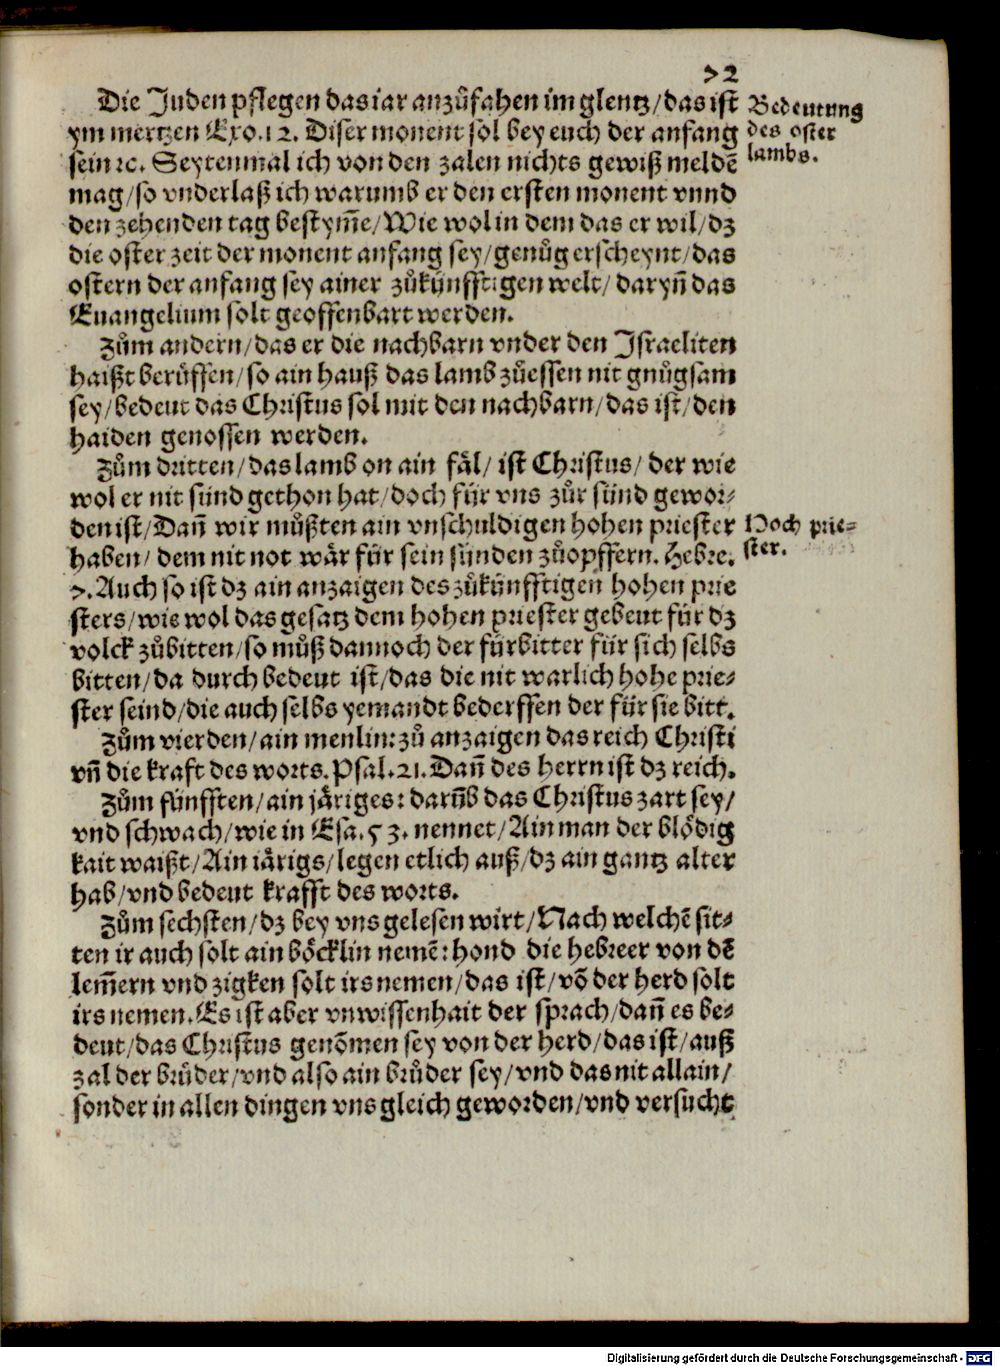 72
Die Juden pflegen das iar anzůfahen im glentz/das ist
ym mertzen Exo.12. Diser monent sol bey euch der anfang
sein ꝛc. Seytenmal ich von den zalen nichts gewiß meldē
mag/so vnderlaß ich warumb er den ersten monent vnnd
den zehenden tag bestym̄e/Wie wol in dem das er wil/dz
die oster zeit der monent anfang sey/genůg erscheynt/das
ostern der anfang sey ainer zůkünfftigen welt/daryn̄ das
Euangelium solt geoffenbart werden.
Zům andern/das er die nachbarn vnder den Israeliten
haißt berůffen/so ain hauß das lamb zůessen nit gnůgsam
sey/bedeut das Christus sol mit den nachbarn/das ist/den
haiden genossen werden.
Zům dritten/das lamb on ain fäl/ist Christus/der wie
wol er nit sünd gethon hat/doch für vns zůr sünd gewor⸗
den ist/Dan̄ wir můßten ain vnschuldigen hohen priester
haben/dem nit not wär für sein sünden zůopffern. Hebre.
7. Auch so ist dz ain anzaigen des zůkünfftigen hohen prie
sters/wie wol das gesatz dem hohen priester gebeut für dz
volck zůbitten/so můß dannoch der fürbitter für sich selbs
bitten/da durch bedeut ist/das die nit warlich hohe prie⸗
ster seind/die auch selbs yemandt bederffen der für sie bitt.
Zům vierden/ain menlin: zů anzaigen das reich Christi
vn̄ die kraft des worts. Psal.21. Dan̄ des herrn ist dz reich.
Zům fünfften/ain järiges: darūb das Christus zart sey/
vnd schwach/wie in Esa.53. nennet/Ain man der blödig
kait waißt/Ain iärigs/legen etlich auß/dz ain gantz alter
hab/vnd bedeut krafft des worts.
Zům sechsten/dz bey vns gelesen wirt/Nach welchē sit⸗
ten ir auch solt ain böcklin nemē: hond die hebreer von dē
lem̄ern vnd zigken solt irs nemen/das ist/vō der herd solt
irs nemen. Es ist aber vnwissenhait der sprach/dan̄ es be⸗
deut/das Christus genōmen sey von der herd/das ist/auß
zal der brůder/vnd also ain brůder sey/vnd das nit allain/
sonder in allen dingen vns gleich geworden/vnd versucht
Bedeutung
des oster
lambs.
Hoch prie⸗
ster.
Digitalisierung gefördert durch die Deutsche Forschungsgemeinschaft - DFG